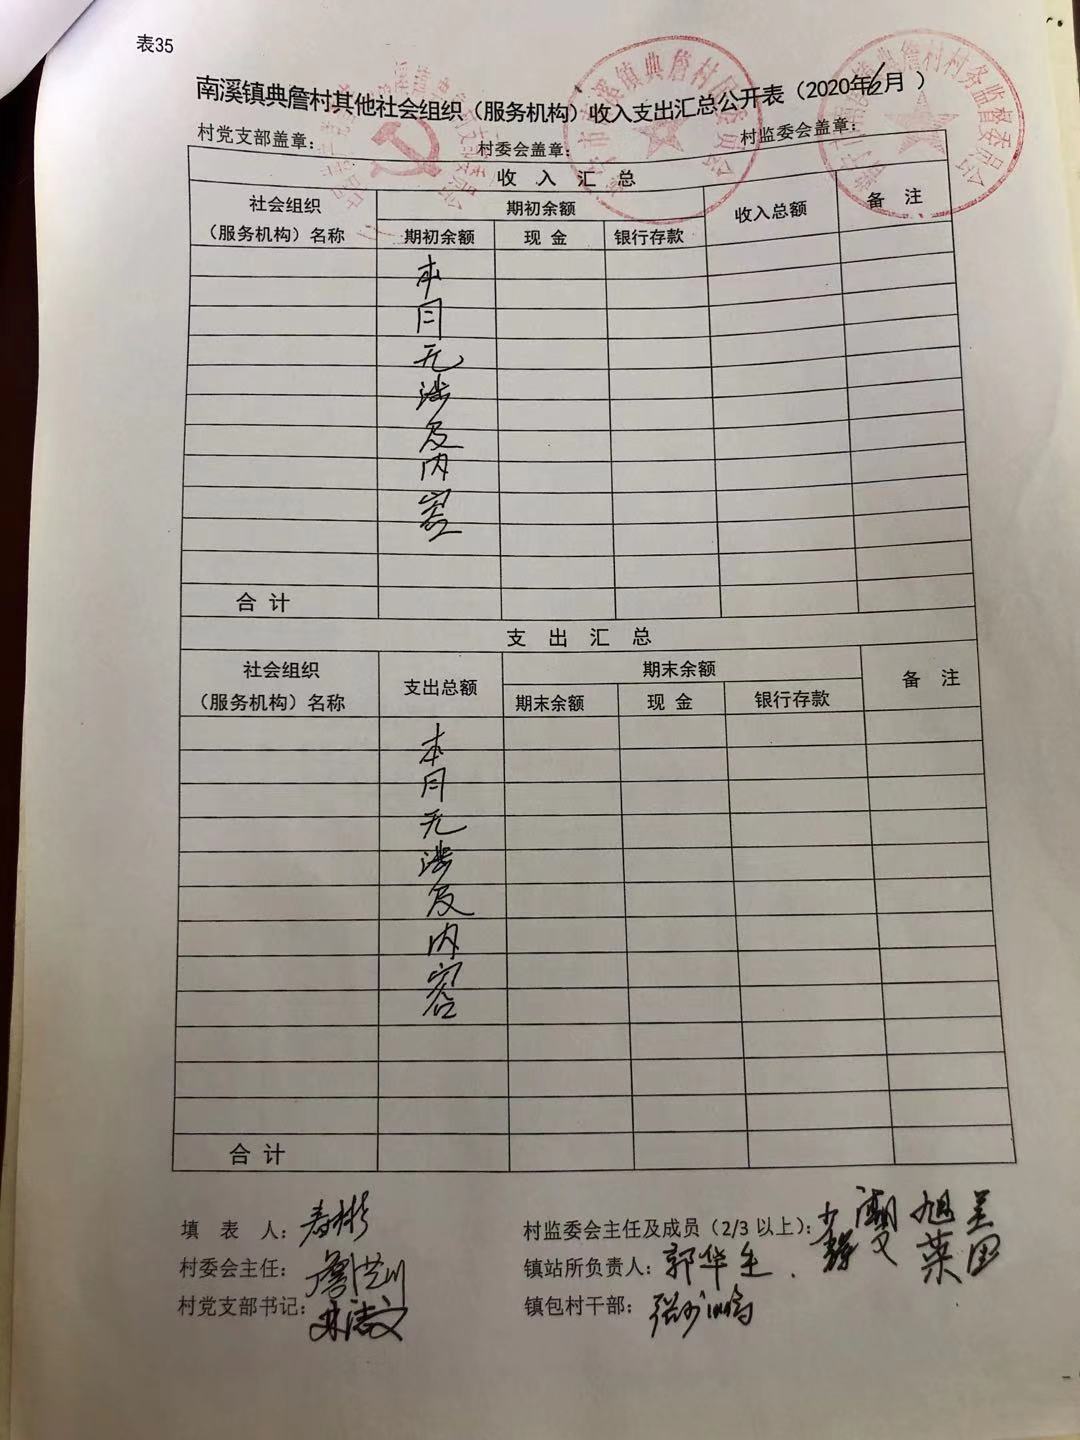 表35
南溪镇典詹村其他社会组织（服务机构）收入支出汇总公开表（2020年6月 ）
村党支部盖章： 村委会盖章： 村监委会盖章：
收 入 汇 总
社会组织
（服务机构）名称
期初余额
收入总额
备 注
期初余额 现 金 银行存款
本月无涉及内容
合 计
支 出 汇 总
社会组织
（服务机构）名称
支出总额
期末余额
备 注
期末余额 现 金 银行存款
本月无涉及内容
合 计
填 表 人：
村监委会主任及成员（2/3 以上）：
村委会主任：
镇站所负责人：郭华生
村党支部书记：
镇包村干部：